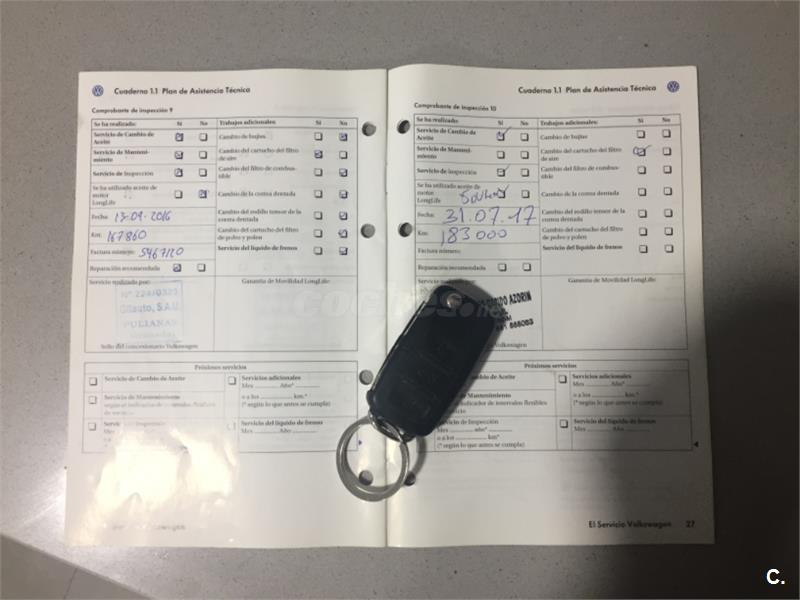 Cuaderno 1.1 Plan de Asistencia Técnica
Comprobante de inspección 9
Se ha realizado: Sí No
Trabajos adicionales: Sí No
Servicio de Cambio de
Aceite
Cambio de bujías
Servicio de Manteni-
miento
Cambio del cartucho del filtro
de aire
Servicio de Inspección
Cambio del filtro de combus-
tible
Se ha utilizado aceite de
motor
LongLife
Cambio de la correa dentada
Fecha: 13-09-2016
Cambio del rodillo tensor de la
correa dentada
Km: 167860
Cambio del cartucho del filtro
de polvo y polen
Factura número: 5467120
Servicio del líquido de frenos
Reparación recomendada
Servicio realizado por:
Garantía de Movilidad LongLife:
Gilauto, S.A.U.
PULIANAS
Sello del concesionario Volkswagen
Próximos servicios
Servicio de Cambio de Aceite
Servicios adicionales
Mes Año*
Servicio de Mantenimiento
según el indicador de intervalos flexibles
de servicio
o a los km.*
(* según lo que antes se cumpla)
Servicio de Inspección
Servicio del líquido de frenos
Mes Año
Cuaderno 1.1 Plan de Asistencia Técnica
Comprobante de inspección 10
Se ha realizado: Sí No
Trabajos adicionales: Sí No
Servicio de Cambio de
Aceite
Cambio de bujías
Servicio de Manteni-
miento
Cambio del cartucho del filtro
de aire
Servicio de Inspección
Cambio del filtro de combus-
tible
Se ha utilizado aceite de
motor
LongLife
Cambio de la correa dentada
Fecha: 31.07.17
Cambio del rodillo tensor de la
correa dentada
Km: 183000
Cambio del cartucho del filtro
de polvo y polen
Factura número:
Servicio del líquido de frenos
Reparación recomendada
Servicio
Garantía de Movilidad LongLife:
AZORIN
Volkswagen
Próximos servicios
Cambio de Aceite
Servicios adicionales
Mes Año*
Mantenimiento
indicador de intervalos flexibles
servicio
o a los km.*
(* según lo que antes se cumpla)
Servicio de Inspección
Mes año*
o a los km*
(* según lo que antes se cumpla)
Servicio del líquido de frenos
Mes Año
El Servicio Volkswagen 27
coches.net
C.